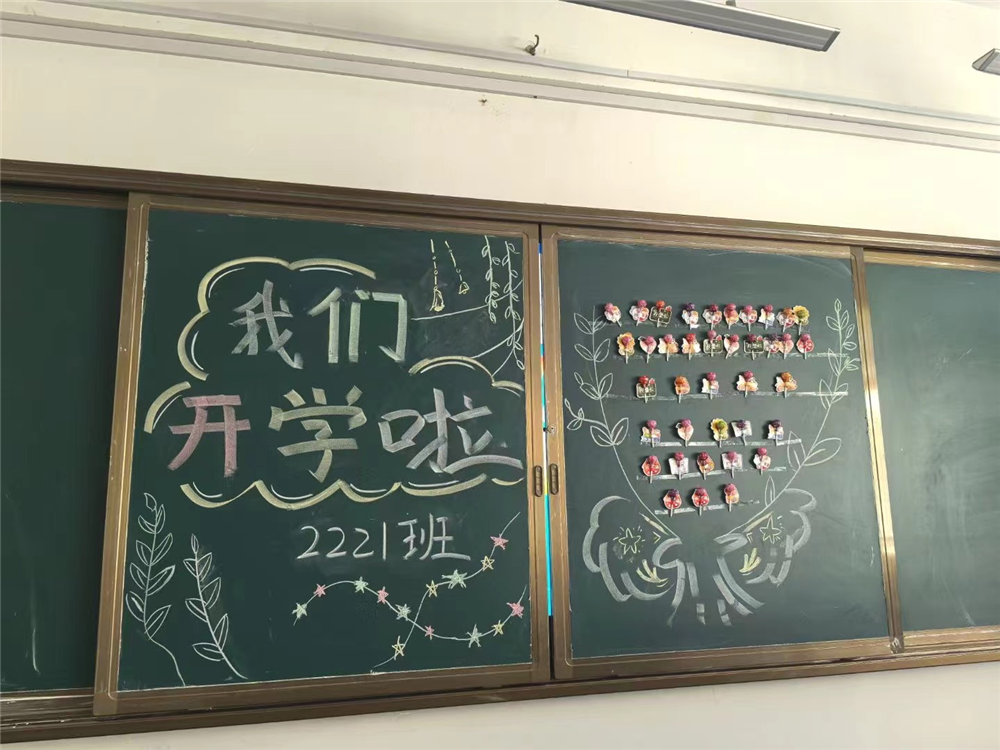 我们
开学啦
2221班